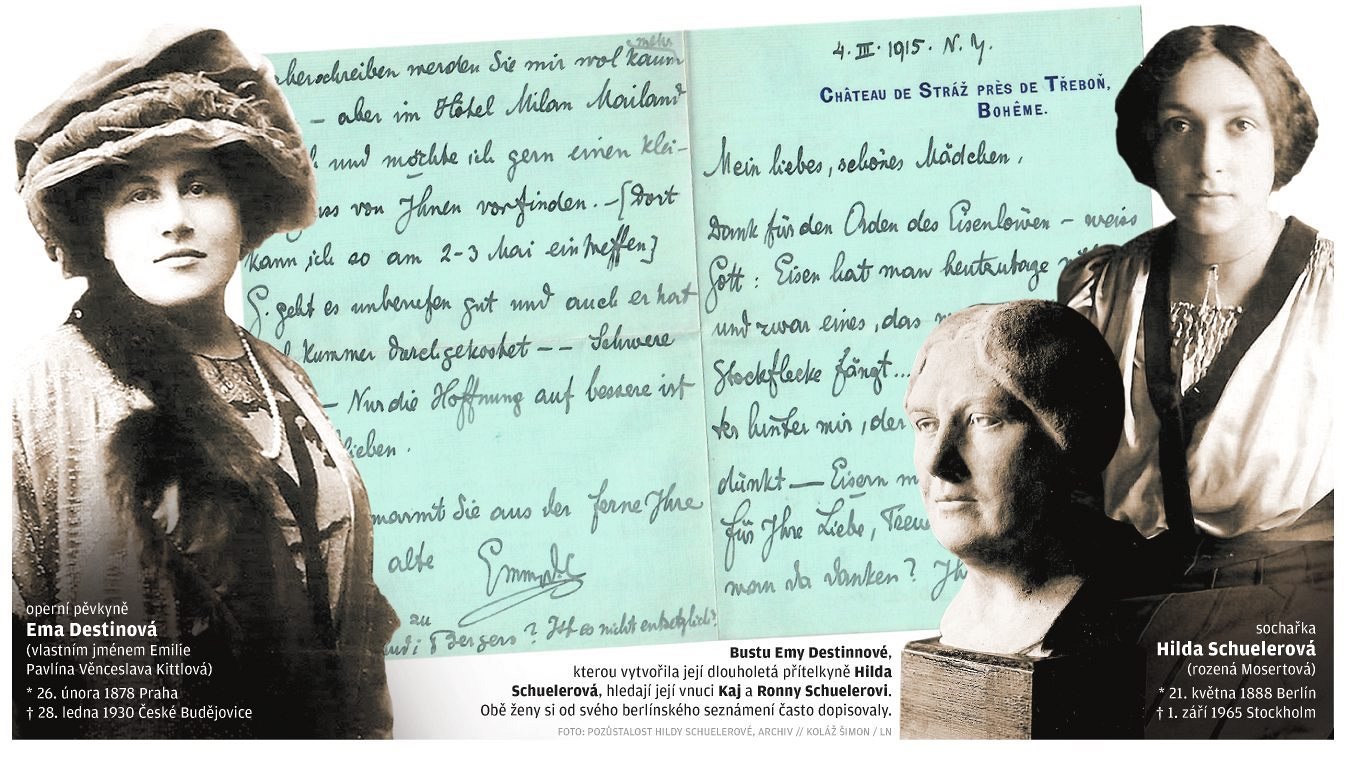 mehr
herschreiben werden Sie mir wol kaum
– aber im Hôtel Milan Mailand
und möchte ich gern einen klei-
von Ihnen vorfinden. – [Dort
kann ich so am 2-3 Mai eintreffen]
G. geht es unberufen gut und auch er hat
Kummer durchgekostet –– Schwere
– Nur die Hoffnung auf bessere ist
lieben.
marmt Sie aus der ferne Ihre
alte
zu
Bergers? Ist es nicht entsetzlich?
4. III. 1915. N. Y.
CHÂTEAU DE STRÁŽ PRÈS DE TŘEBOŇ,
BOHÊME.
Mein liebes, schönes Mädchen,
Dank für den Orden des Eisenlöwen – weiss
Gott: Eisen hat man heutzutage
und zwar eines, das
Stockflecke fängt...
ter hinter mir, der
dünkt — Eisern
für Ihre Liebe, Treu
man da danken? Ih
operní pěvkyně
Ema Destinová
(vlastním jménem Emilie
Pavlína Věnceslava Kittlová)
* 26. února 1878 Praha
† 28. ledna 1930 České Budějovice
Bustu Emy Destinnové,
kterou vytvořila její dlouholetá přítelkyně Hilda
Schuelerová, hledají její vnuci Kaj a Ronny Schuelerovi.
Obě ženy si od svého berlínského seznámení často dopisovaly.
FOTO: POZŮSTALOST HILDY SCHUELEROVÉ, ARCHIV // KOLÁŽ ŠIMON / LN
sochařka
Hilda Schuelerová
(rozená Mosertová)
* 21. května 1888 Berlín
† 1. září 1965 Stockholm